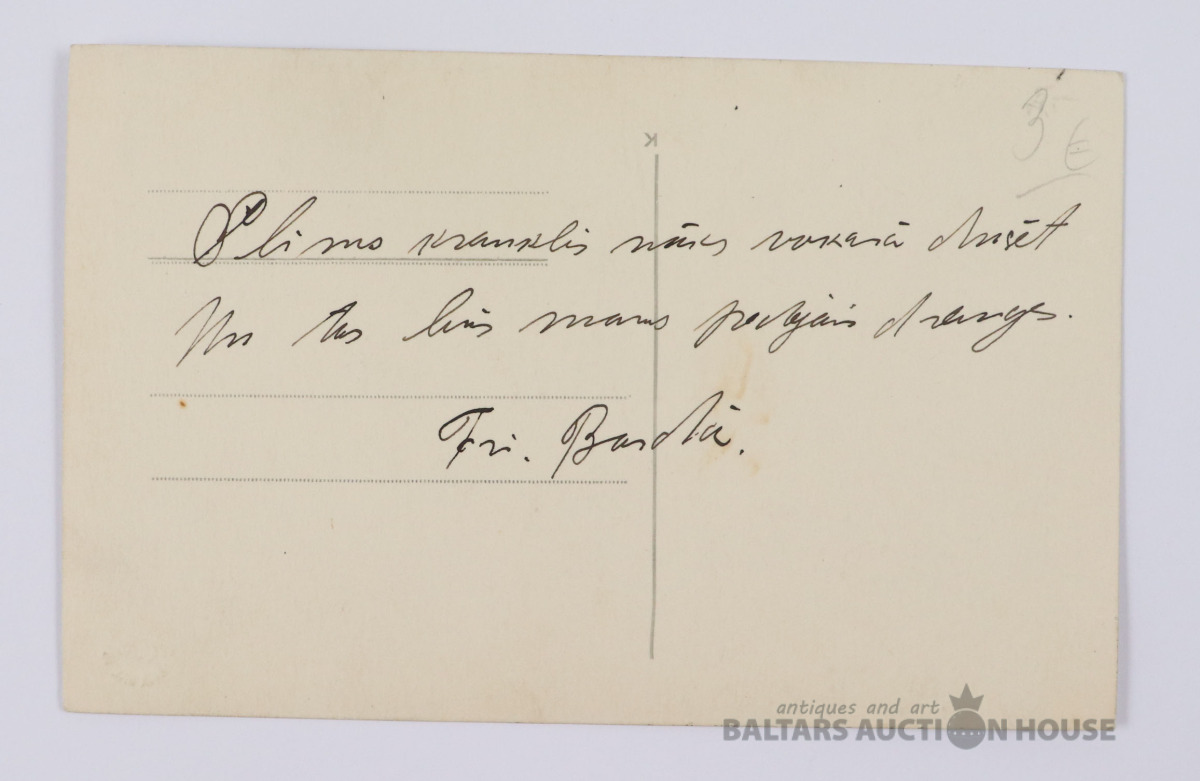 3 €
Slims krauklis nāks vakarā dusēt
Un tas būs mans pēdējais draugs.
Fri. Bardā.
antiques and art
BALTARS AUCTION HOUSE